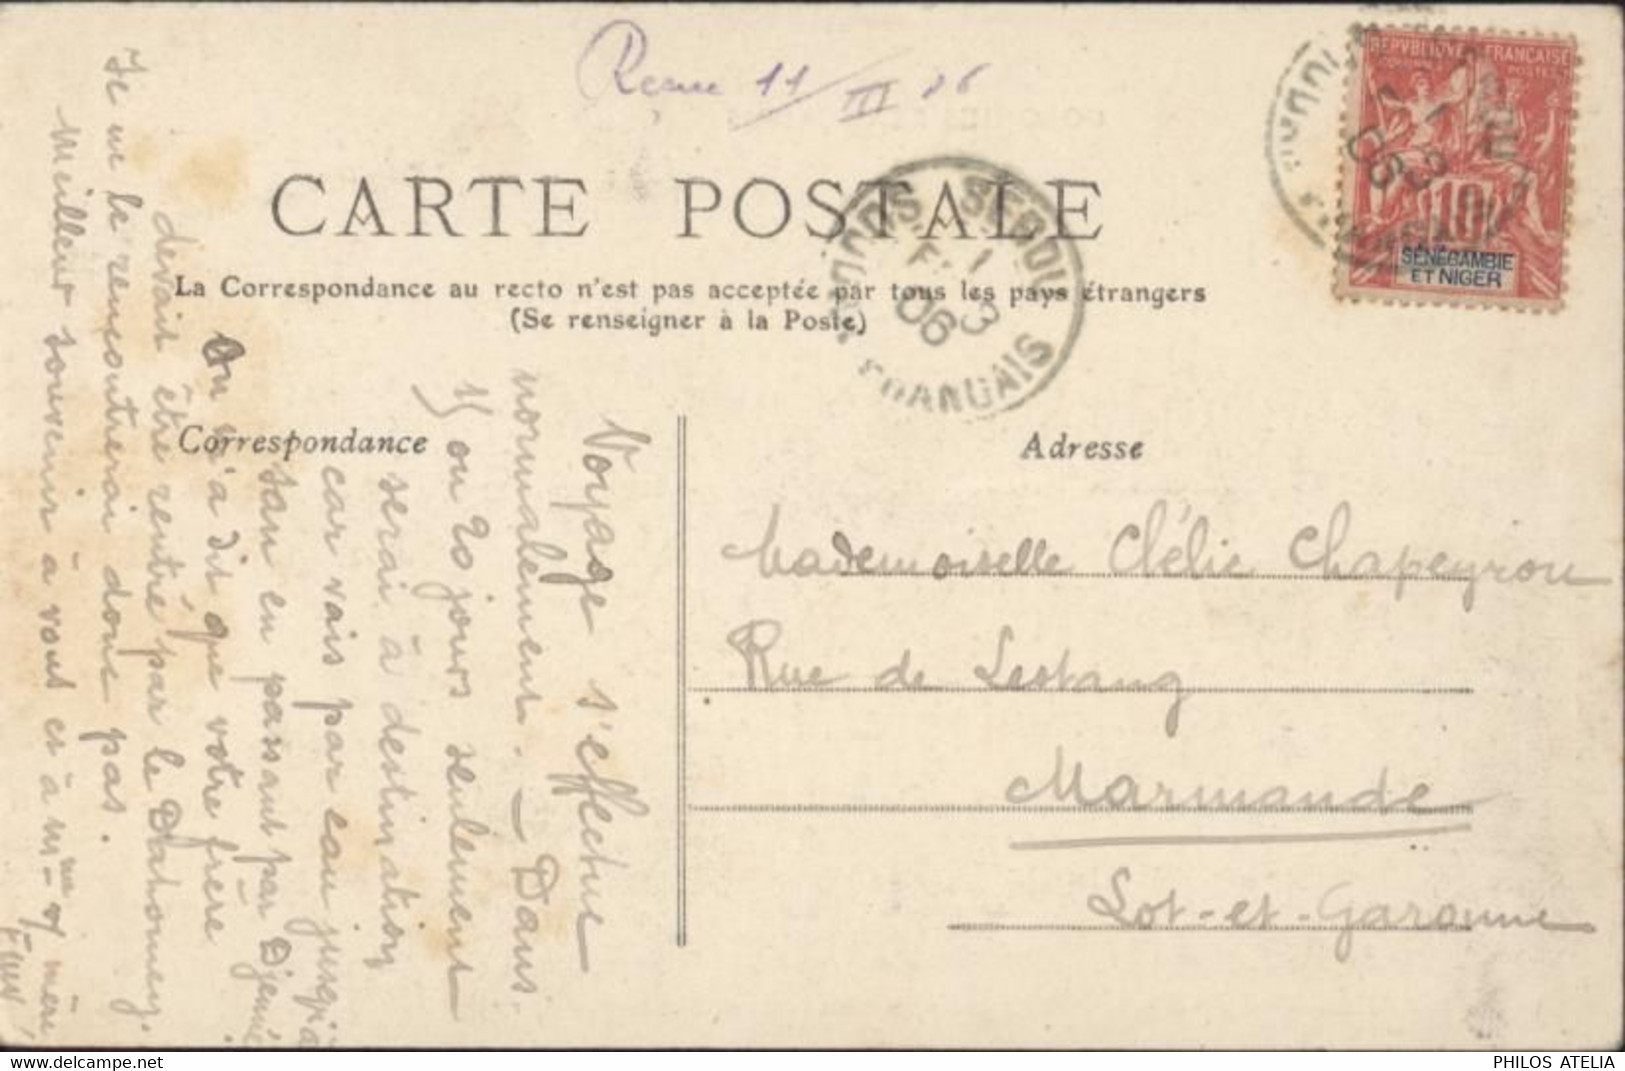 Reçue 11/III 06
CARTE POSTALE
La Correspondance au recto n'est pas acceptée par tous les pays étrangers
(Se renseigner à la Poste)
Correspondance
Adresse
REPVBLIQVE FRANÇAISE
POSTES
10
SÉNÉGAMBIE
ET NIGER
SEGOU
1
3
06
SOUDAN FRANCAIS
Voyage s'effectue
normalement. — Dans
15 ou 20 jours seulement
serai à destination
car vais par eau jusqu'à
San en passant par Djenné.
On m'a dit que votre frère
devait être rentré par le Dahomey.
Je ne le rencontrerai donc pas.
Meilleur souvenir à vous et à Mme v/ mère
Mademoiselle Clélie Chapeyrou
Rue de Lestang
Marmande
Lot-et-Garonne
PHILOS ATELIA